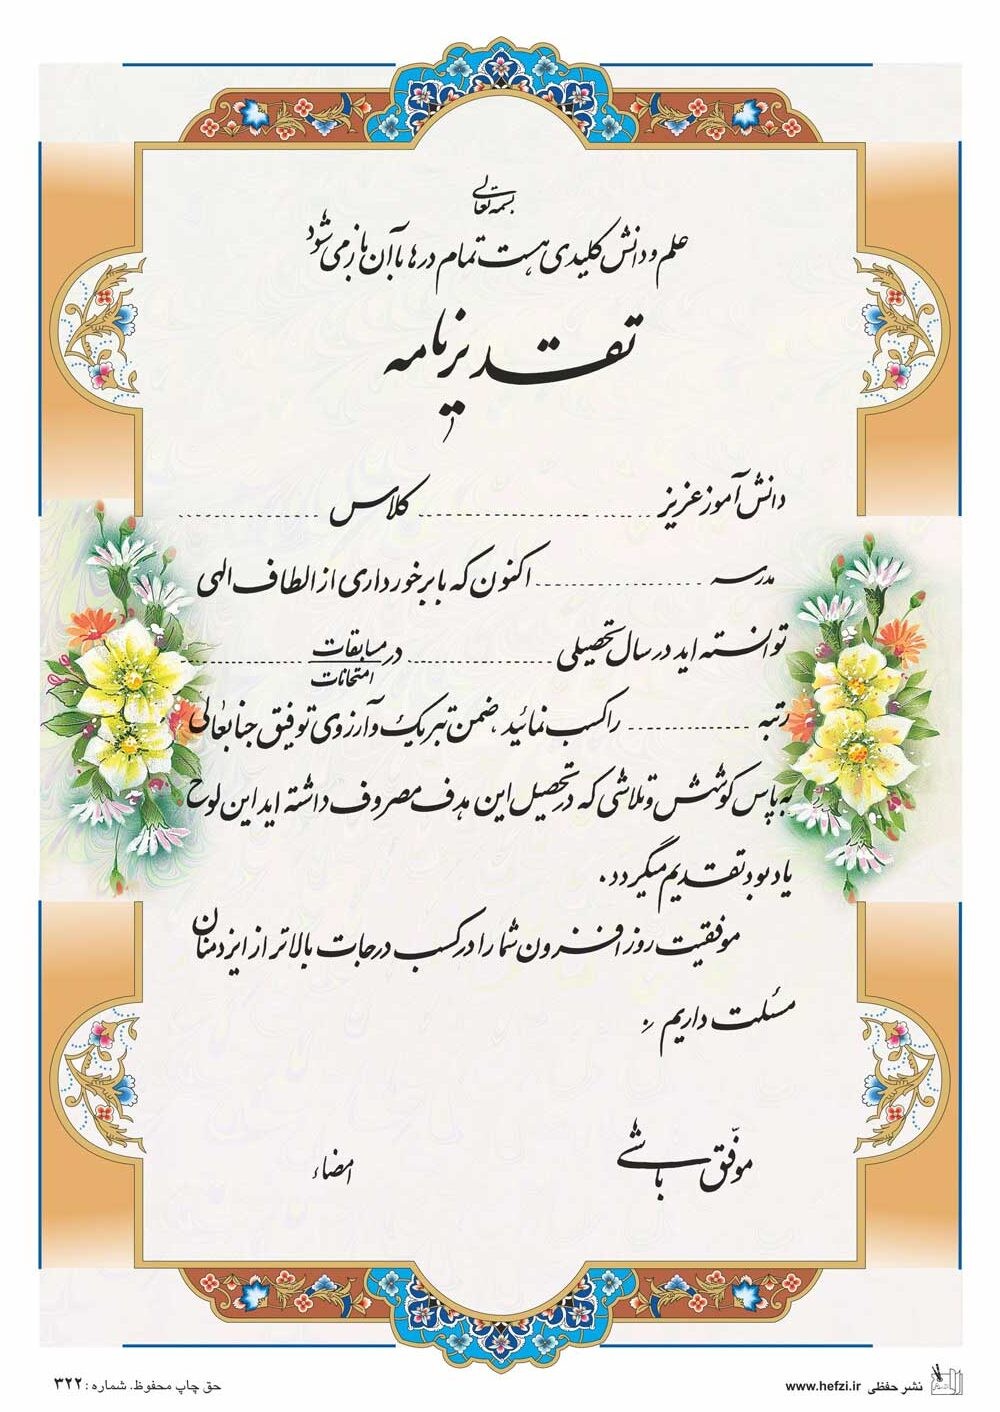 بسمه تعالی
علم و دانش کلیدی هست تمام درها با آن باز می شود
تقدیرنامه
دانش آموز عزیز ........................ کلاس ................
مدرسه .................... اکنون که با برخورداری از الطاف الهی
توانسته اید در سال تحصیلی .................... در مسابقات ................
امتحانات
رتبه ................ را کسب نمائید، ضمن تبریک و آرزوی توفیق جنابعالی
به پاس کوشش و تلاشی که در تحصیل این هدف مصروف داشته اید این لوح
یادبود تقدیم میگردد.
موفقیت روز افزون شما را در کسب درجات بالاتر از ایزد منان
مسئلت داریم.
موفّق باشی
امضاء
نشر حفظی www.hefzi.ir
حق چاپ محفوظ. شماره: ۳۲۲